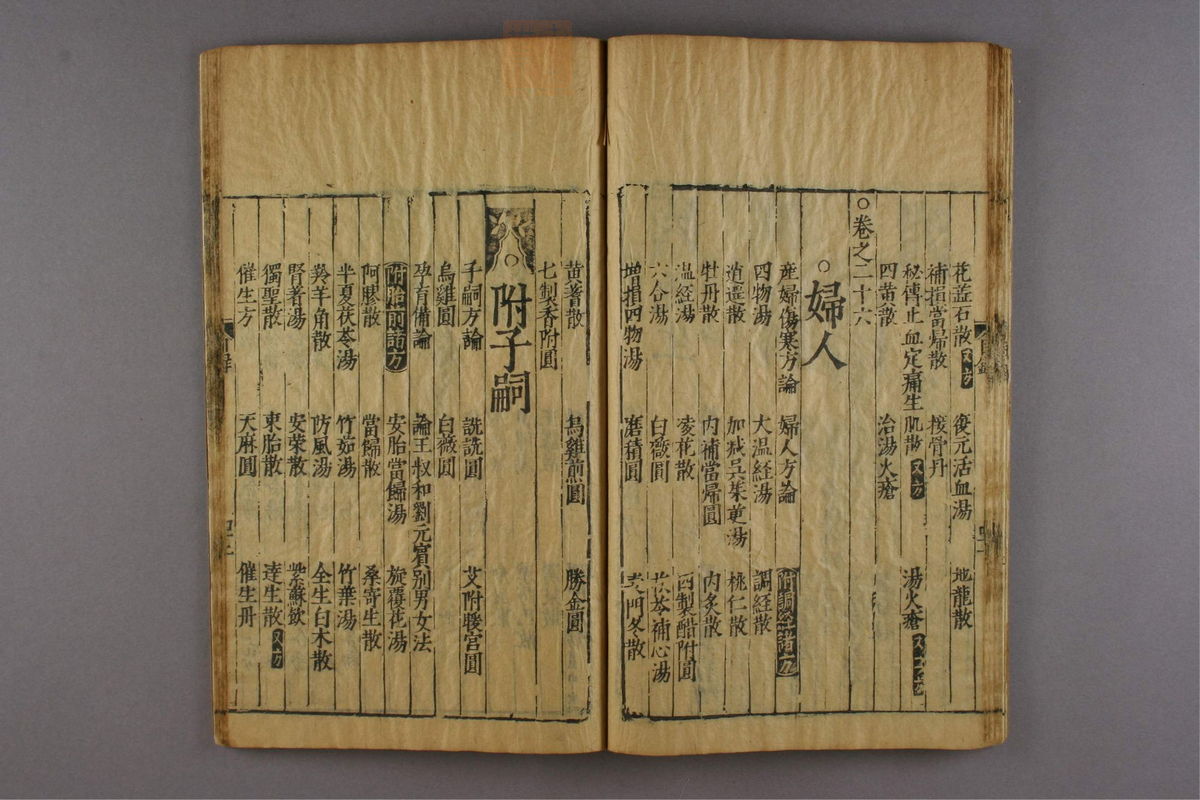 花蕋石散又方 復元活血湯 地龍散
補損當歸散 接骨丹
秘傳止血定痛生肌散又方 湯火瘡
四黃散 治湯火瘡
○卷之二十六
○婦人
產婦傷寒方論 婦人方論 附調經諸方
四物湯 大溫経湯 調經散
逍遥散 加减吳茱萸湯 桃仁散
牡丹散 內補當歸圓 內炙散
溫經湯 凌花散 四製醋附圓
六合湯 白薇圓 茯苓補心湯
增損四物湯 磨積圓 麥門冬散
黃蓍散 烏雞煎圓 勝金圓
七製香附圓
○附子嗣
子嗣方論 詵詵圓 艾附暖宮圓
烏雞圓 白薇圓
孕育備論 論王叔和劉元賓別男女法
附胎前諸方 安胎當歸湯 旋覆花湯
阿膠散 當歸散 桑寄生散
半夏茯苓湯 竹茹湯 竹葉湯
羚羊角散 防風湯 全生白朮散
腎著湯 安榮散 紫蘇飲
獨聖散 束胎散 達生散又方
催生方 天麻圓 催生丹